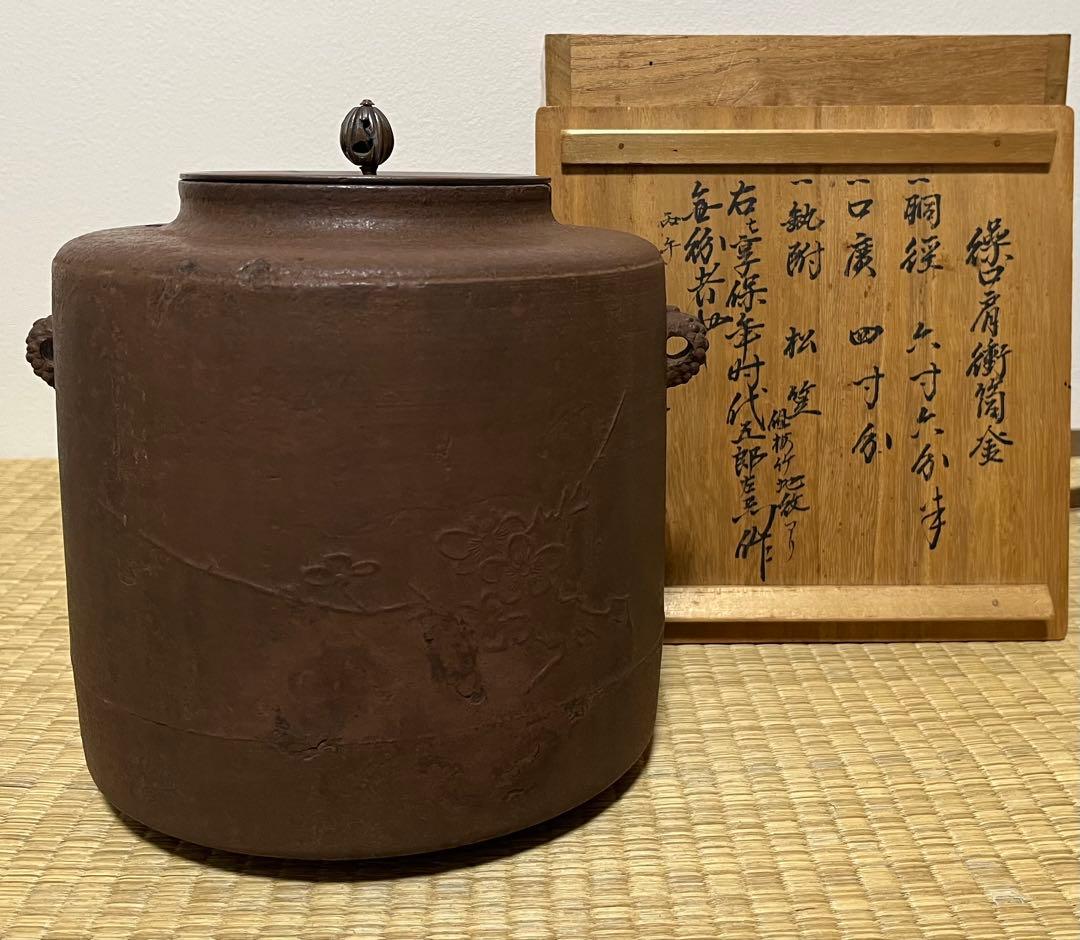 繰口肩衝筒釜
一胴径 六寸六分半
一口廣 四寸分
一執附 松笠
松竹地紋アリ
右ハ享保年時代五郎左エ作
無紛者也
丙午